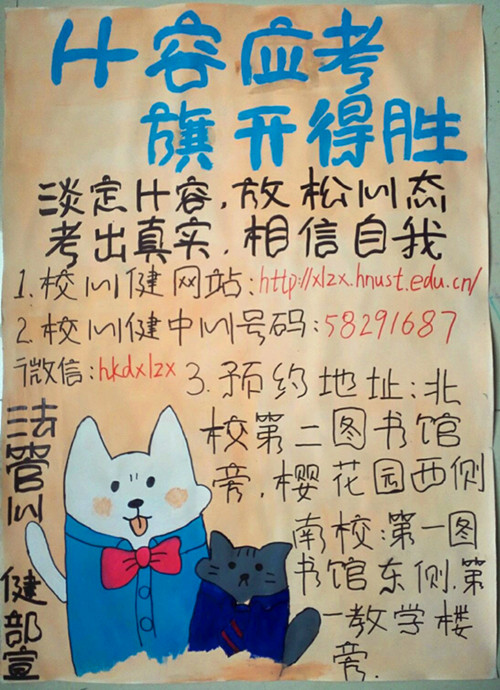 从容应考
旗开得胜
淡定从容,放松心态
考出真实,相信自我
1.校心健网站:http://xlzx.hnust.edu.cn/
2.校心健中心号码:58291687
微信:hkdxlzx
3.预约地址:北
校第二图书馆
旁,樱花园西侧
南校:第一图
书馆东侧.第
一教学楼
旁.
法管心健部宣